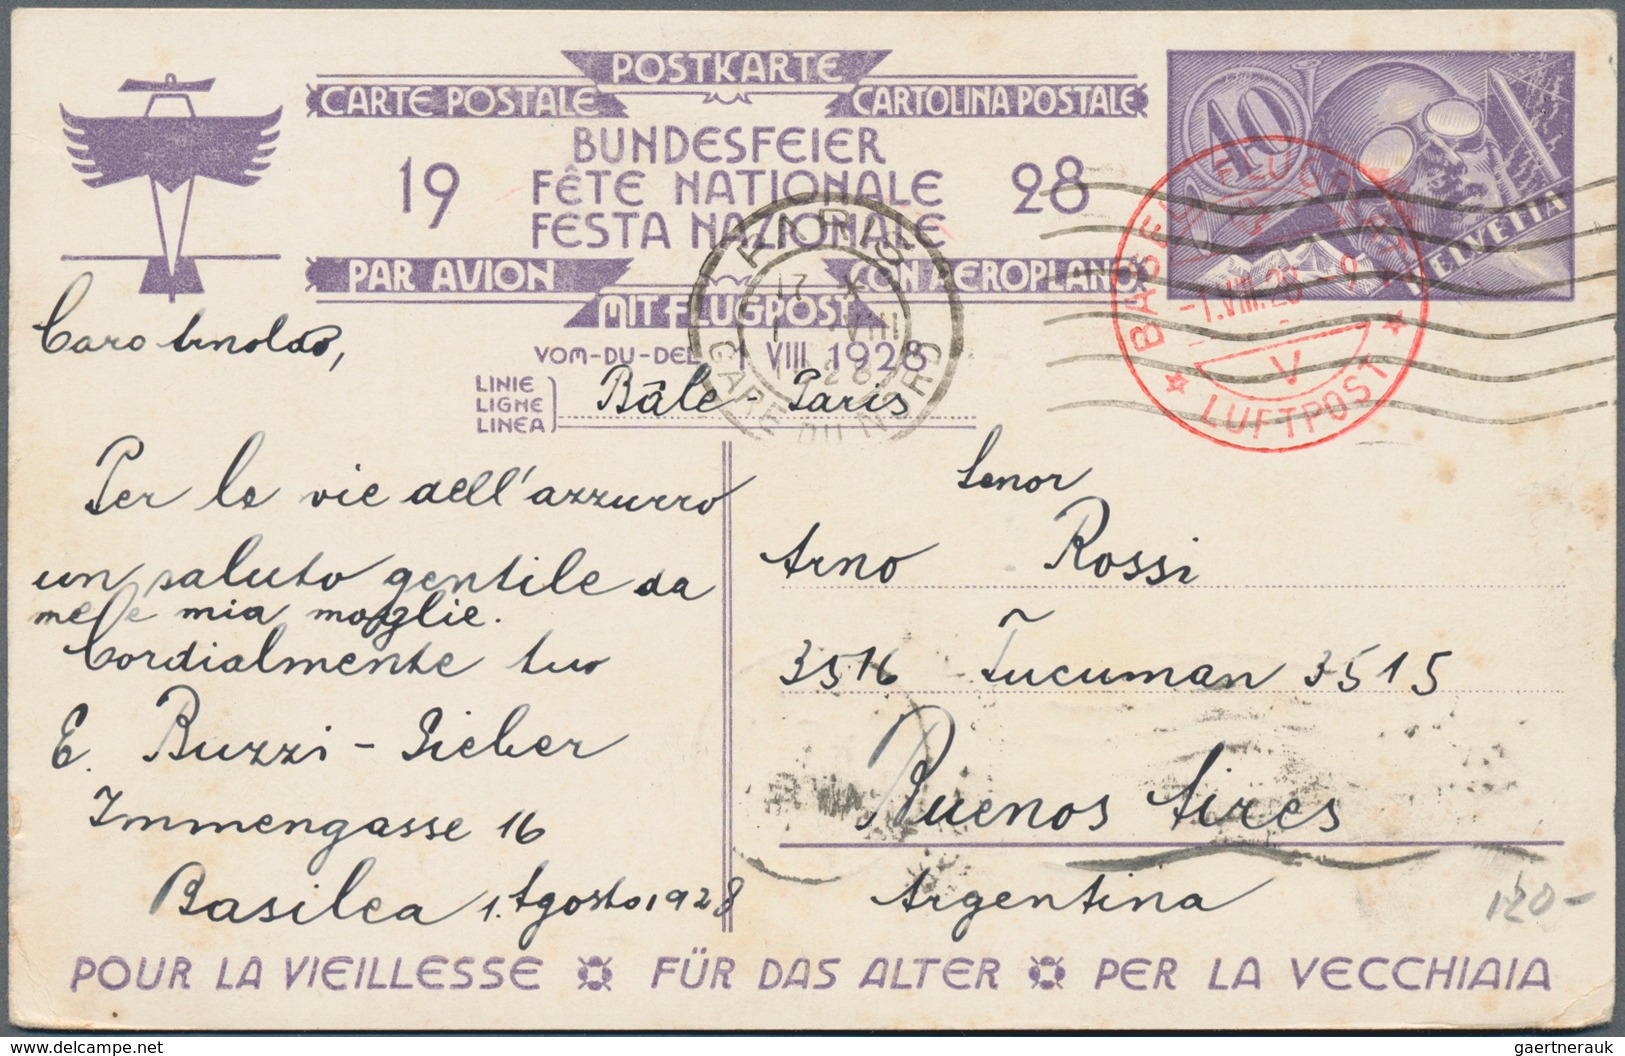 POSTKARTE
CARTE POSTALE
CARTOLINA POSTALE
BUNDESFEIER
19 FÊTE NATIONALE 28
FESTA NAZIONALE
PAR AVION
CON AEROPLANO
MIT FLUGPOST
VOM-DU-DEL 1 VIII 1928
LINIE
LIGNE
LINEA
Bâle - Paris
40
HELVETIA
BASEL FLUGPLATZ
-1.VIII.28 - 9
V
LUFTPOST
PARIS
17
VIII
28
GARE DU NORD
Caro Arnoldo,
Per le vie dell'azzurro
un saluto gentile da
me e mia moglie.
Cordialmente tuo
E. Buzzi - Sieber
Immengasse 16
Basilea 1. Agosto 1928
Senor
Arno Rossi
3516 Tucuman 3515
Buenos Aires
Argentina
120-
POUR LA VIEILLESSE FÜR DAS ALTER PER LA VECCHIAIA
www.delcampe.net
gaertnerauk